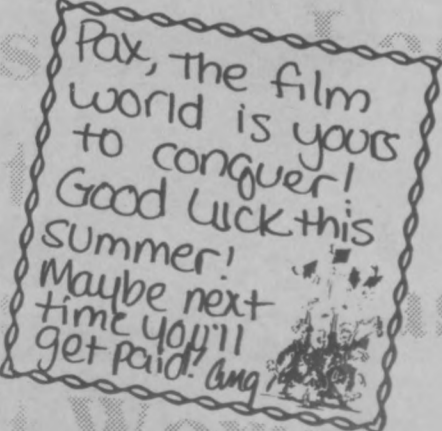 Pax, The film
world is yours
to conquer!
Good luck this
summer!
Maybe next
time you'll
get paid!